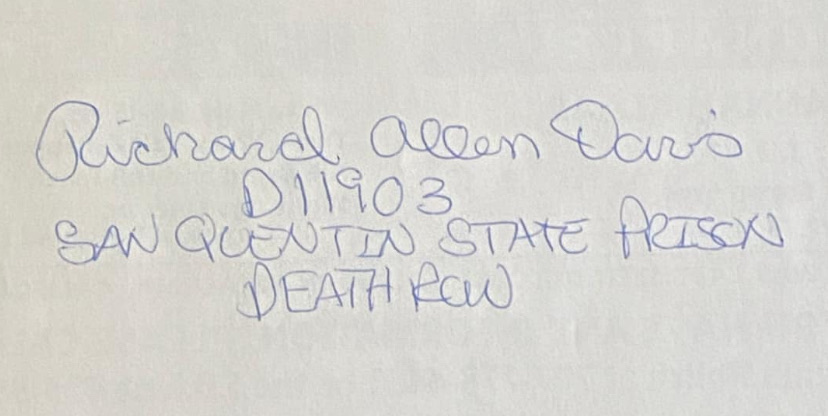 Richard Allen Davis
D11903
SAN QUENTIN STATE PRISON
DEATH ROW